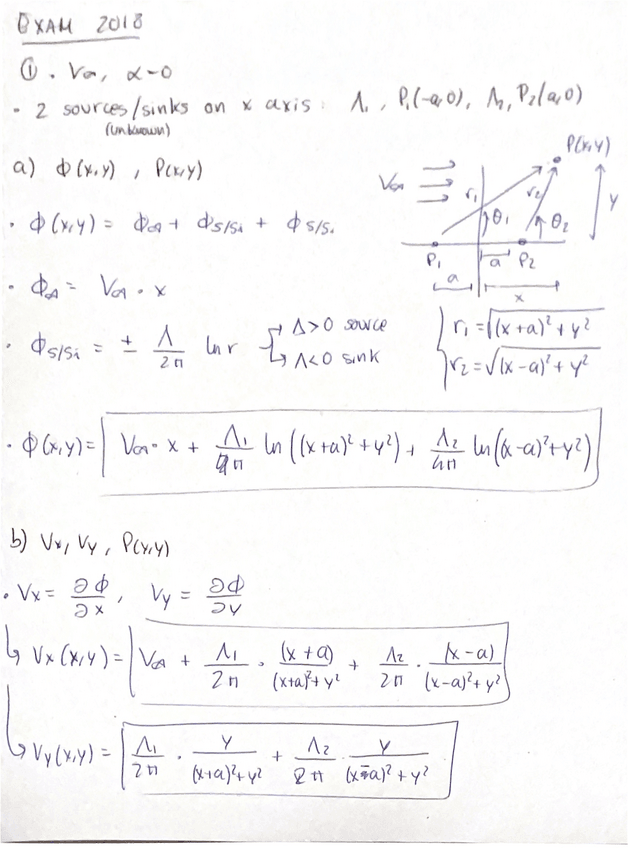 EXAM 2018
① . V∞, α=0
· 2 sources/sinks on x axis: Λ₁, P₁(-a,0), Λ₂, P₂(a,0)
(unknown)
a) ϕ(x,y), P(x,y)
P(x,y)
V∞
r₁
r₂
y
θ₁
θ₂
P₁
a
P₂
a
x
· ϕ(x,y) = ϕ∞ + ϕs/si + ϕs/si
· ϕ∞ = V∞ · x
· ϕs/si = ± Λ/2π ln r
Λ>0 source
Λ<0 sink
r₁ = √((x+a)² + y²)
r₂ = √((x-a)² + y²)
· ϕ(x,y) = V∞ · x + Λ₁/4π ln((x+a)² + y²) + Λ₂/4π ln((x-a)² + y²)
b) Vx, Vy, P(x,y)
· Vx = ∂ϕ/∂x, Vy = ∂ϕ/∂y
↳ Vx(x,y) = V∞ + Λ₁/2π · (x+a)/((x+a)² + y²) + Λ₂/2π · (x-a)/((x-a)² + y²)
↳ Vy(x,y) = Λ₁/2π · y/((x+a)² + y²) + Λ₂/2π · y/((x-a)² + y²)